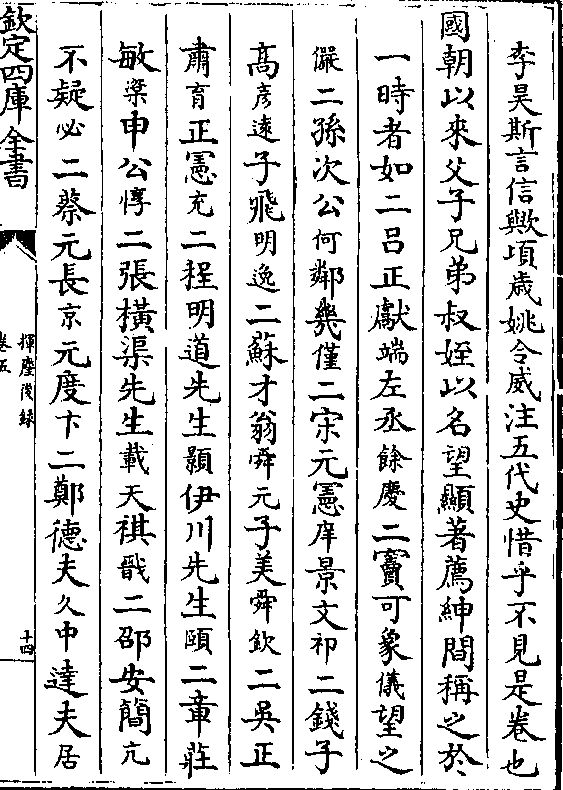 李昊斯言信歟項歲姚令威注五代史惜乎不見是卷也
國朝以來父子兄弟叔姪以名望顯著薦紳間稱之於
一時者如二呂正獻端左丞餘慶二竇可象儀望之
儼二孫次公何鄰幾僅二宋元憲庠景文祁二錢子
高彥遠子飛明逸二蘇才翁舜元子美舜欽二吳正
肅育正憲充二程明道先生顥伊川先生頤二章莊
敏楶申公惇二張橫渠先生載天祺戩二邵安簡亢
不疑必二蔡元長京元度卞二鄭德夫久中達夫居
欽定四庫全書
揮麈後錄
卷五
十四